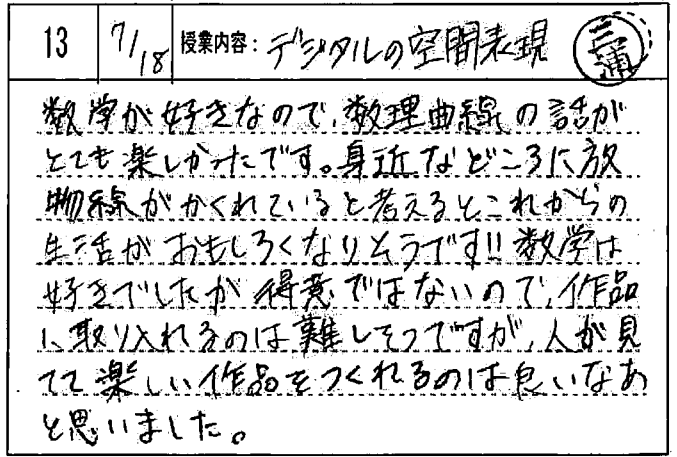 13 7/18 授業内容: デジタルの空間表現 三浦
数学が好きなので、数理曲線の話が
とても楽しかったです。身近なところに放
物線がかくれていると考えるとこれからの
生活がおもしろくなりそうです!! 数学は
好きでしたが得意ではないので、作品
に取り入れるのは難しそうですが、人が見
てて楽しい作品をつくれるのは良いなあ
と思いました。